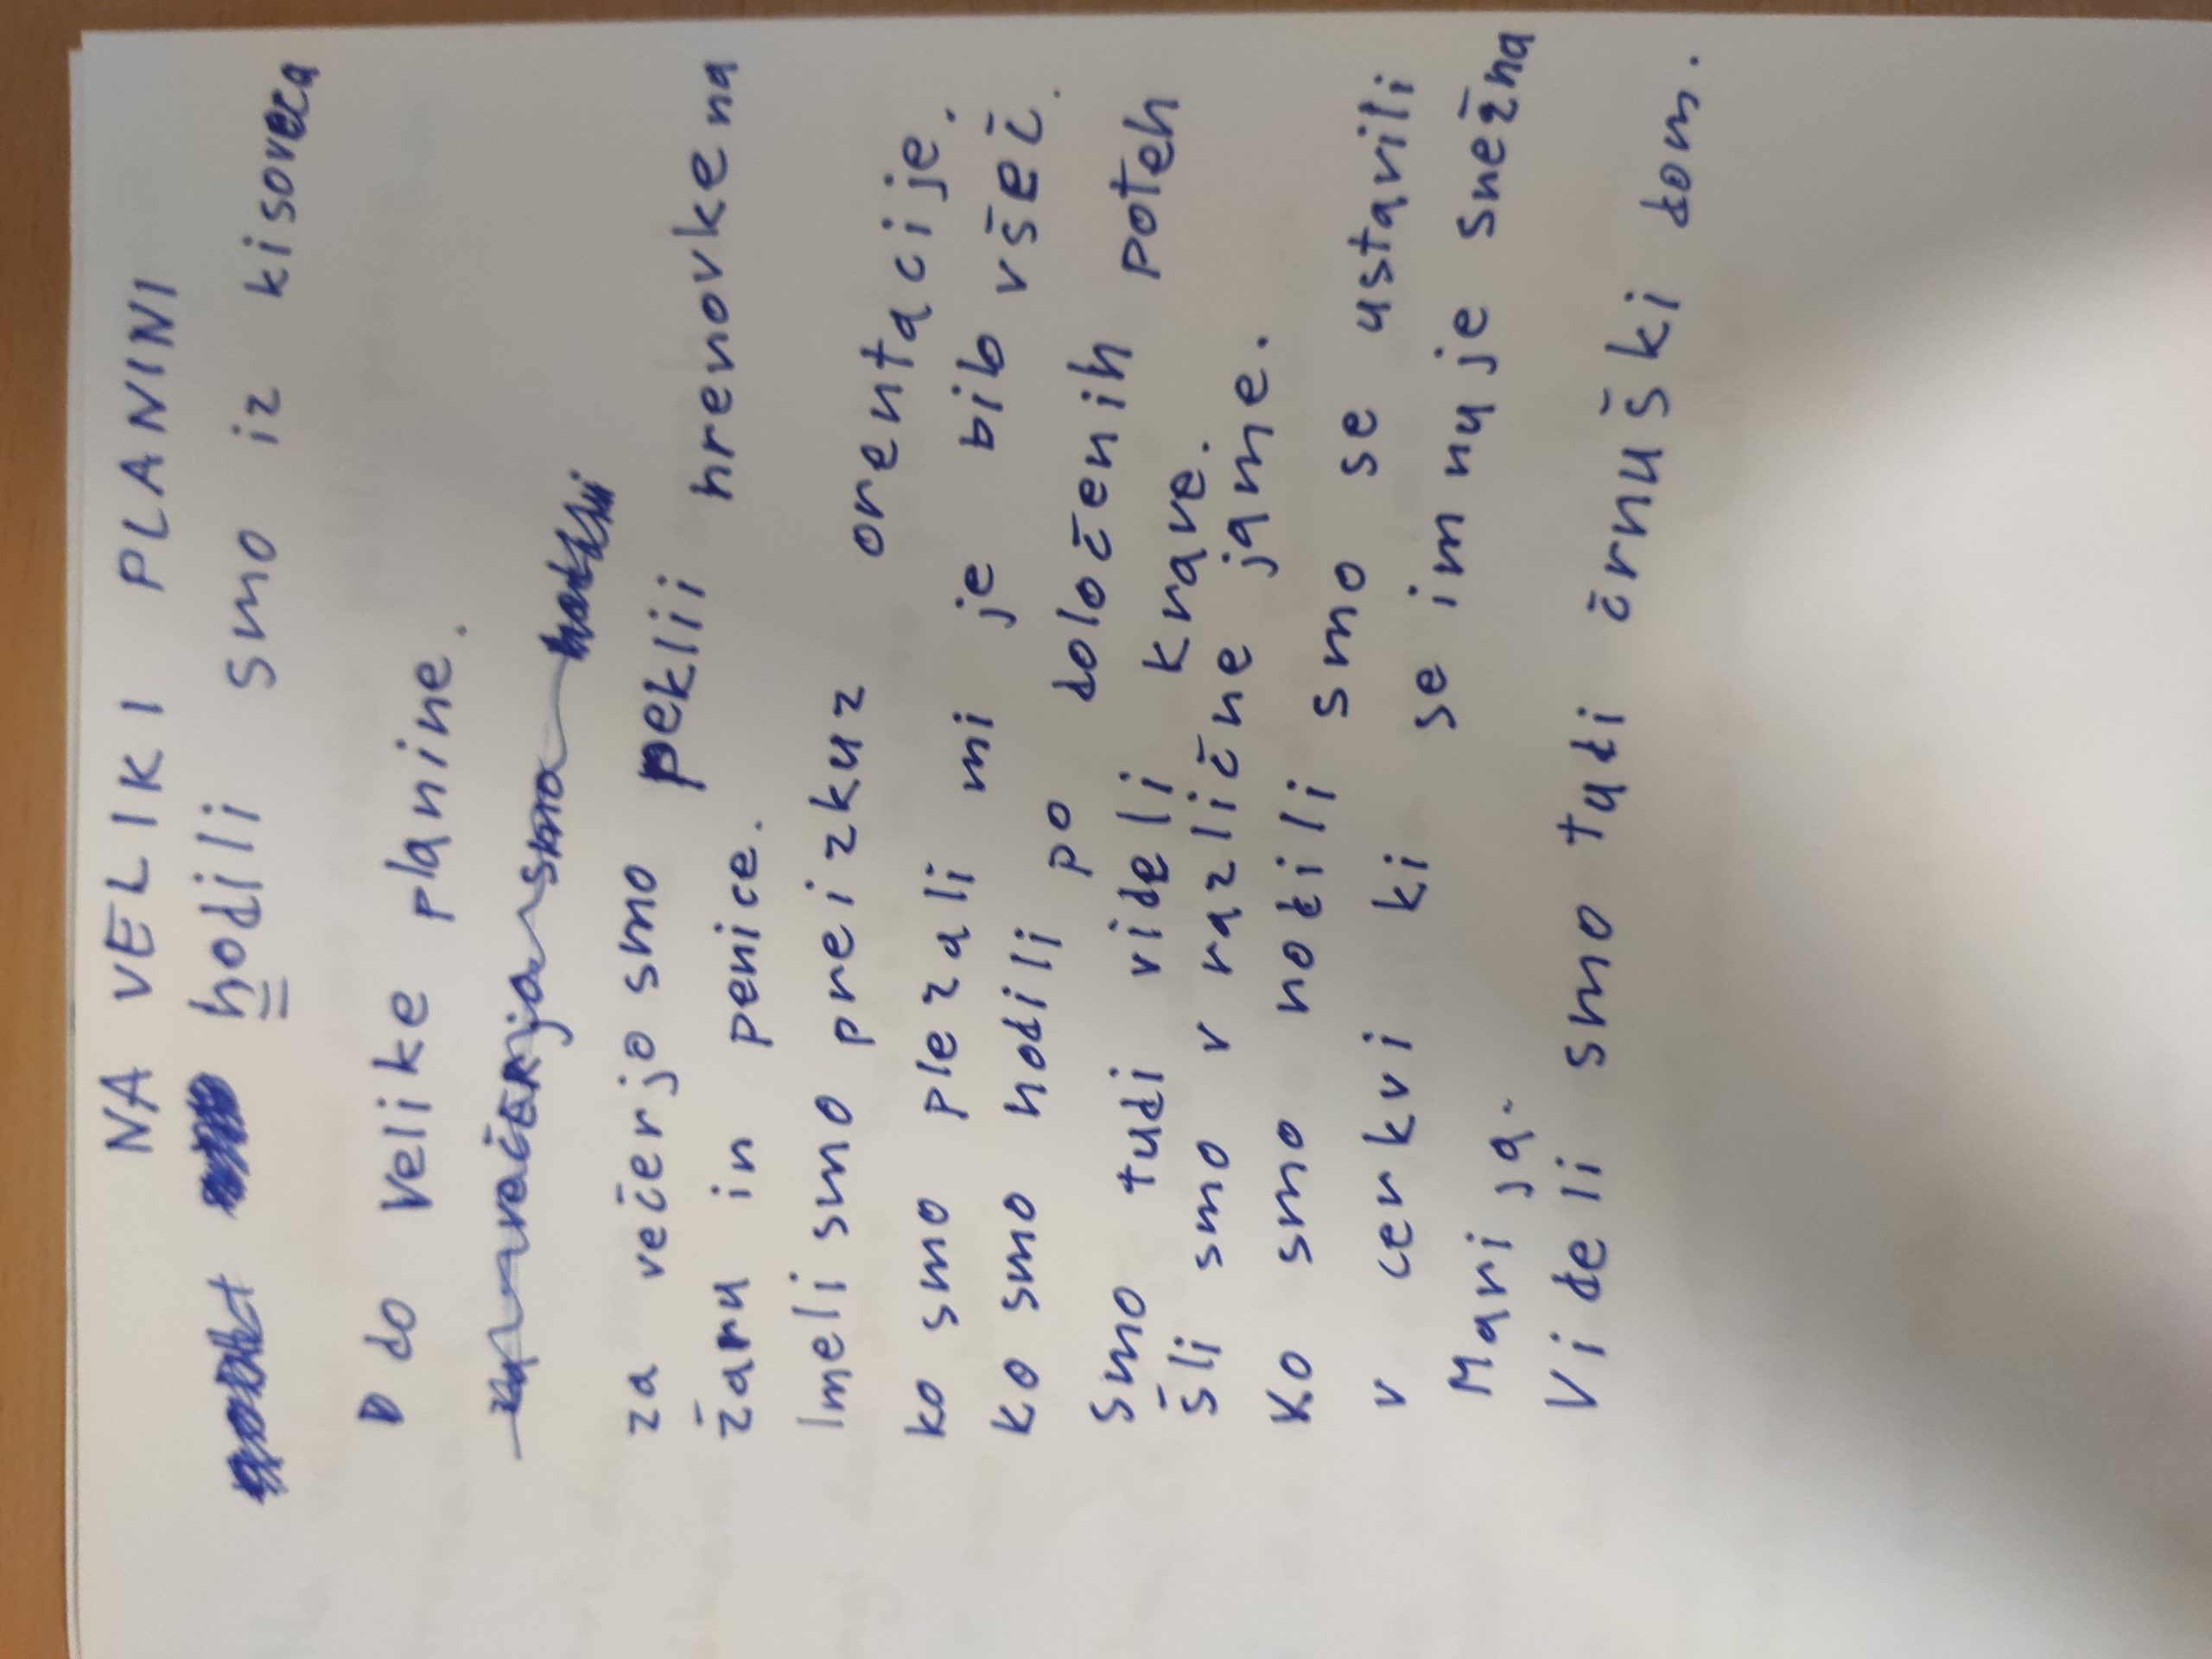 NA VELIKI PLANINI
hodili smo iz kisovca
do Velike planine.
za večerjo smo peklii hrenovke na
žaru in penice.
Imeli smo preizkuz orentacije.
ko smo plezali mi je bib všeč.
ko smo hodili po določenih poteh
smo tudi videli krave.
šli smo v različne jame.
Ko smo hodili smo se ustavili
v cerkvi ki se imnuje snežna
Marija.
Videli smo tudi črnuški dom.